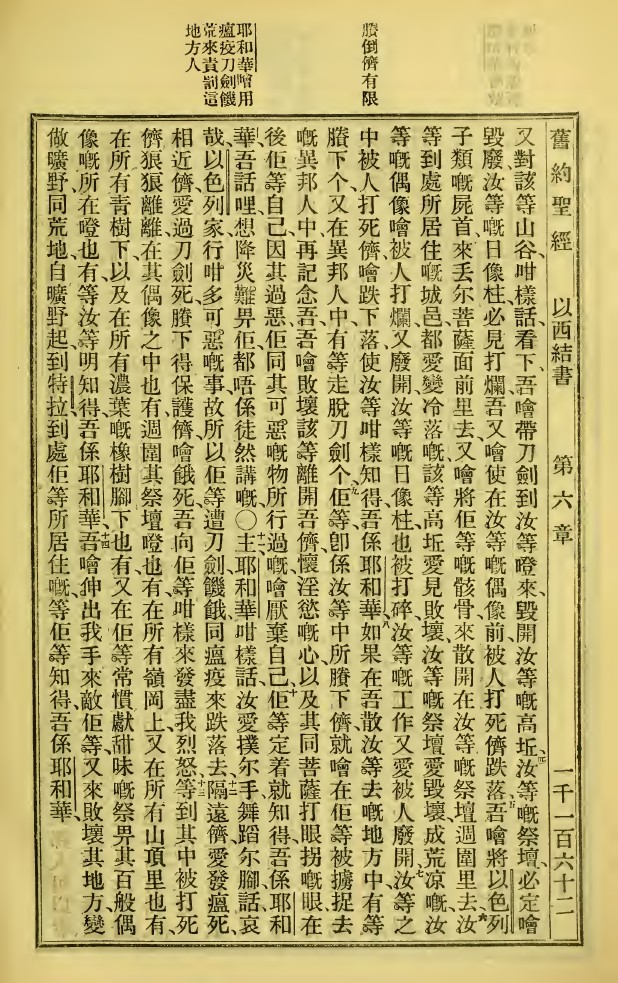 舊約聖經 以西結書 第六章 一千一百六十二
賸倒儕有限
耶和華噲用
瘟疫刀劍饑
荒來責罰這
地方人
又對該等山谷咁樣話、看下、吾噲帶刀劍到汝等嶝來、毀開汝等嘅高坵、四汝等嘅祭壇、必定噲
毀廢、汝等嘅日像柱必見打爛、吾又噲使在汝等嘅偶像前被人打死儕跌落、五吾噲將以色列
子類嘅屍首來丢尓菩薩面前里去、又噲將佢等嘅骸骨來散開在汝等嘅祭壇週圍里去、六汝
等到處所居住嘅城邑都愛變冷落嘅、該等高坵愛見敗壞、汝等嘅祭壇愛毀壞成荒凉嘅、汝
等嘅偶像噲被人打爛、又廢開汝等嘅日像柱、也被打碎、汝等嘅工作又愛被人廢開、七汝等之
中被人打死儕噲跌下落、使汝等咁樣知得、吾係耶和華、八如果在吾散汝等去嘅地方中有等
賸下个、又在異邦人中、有等走脫刀劍个、九佢等、卽係汝等中所賸下儕、就噲在佢等被擄捉去
嘅異邦人中、再記念吾、吾噲敗壞該等離開吾儕懷淫慾嘅心、以及其同菩薩打眼拐嘅眼、在
後佢等自己、因其過惡、佢同其可惡嘅物所行過嘅、噲厭棄自己、十佢等定着就知得、吾係耶和
華、吾話哩、想降災難畀佢、都唔係徒然講嘅、〇十一主耶和華咁樣話、汝愛撲尓手、舞蹈尓腳、話、哀
哉、以色列家行咁多可惡嘅事、故所以佢等遭刀劍饑餓同瘟疫來跌落去、十二隔遠儕愛發瘟死、
相近儕愛過刀劍死、賸下得保護儕噲餓死、吾向佢等咁樣來發盡我烈怒、十三等到其中被打死
儕狼狼離離、在其偶像之中也有、週圍其祭壇嶝也有、在所有嶺岡上、又在所有山頂里也有、
在所有青樹下、以及在所有濃葉嘅橡樹腳下也有、又在佢等常慣獻甜味嘅祭畀其百般偶
像嘅所在嶝也有、等汝等明知得、吾係耶和華、十四吾噲伸出我手來敵佢等、又來敗壞其地方、變
做曠野同荒地、自曠野起到特拉、到處佢等所居住嘅、等佢等知得、吾係耶和華、